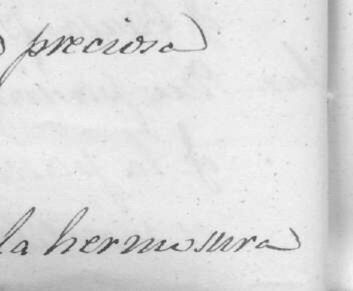 preciosa
la hermosura